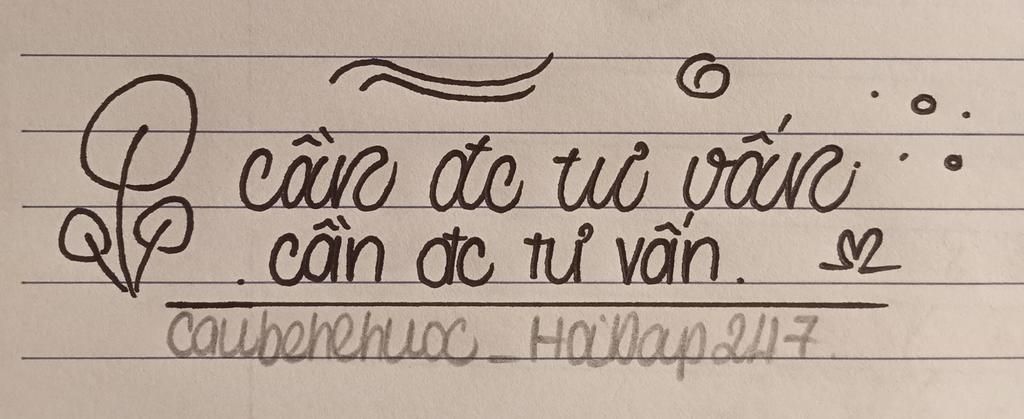 cần đc tư vấn.
. cần đc tư vấn.
Caubehehuoc_HoiDap247